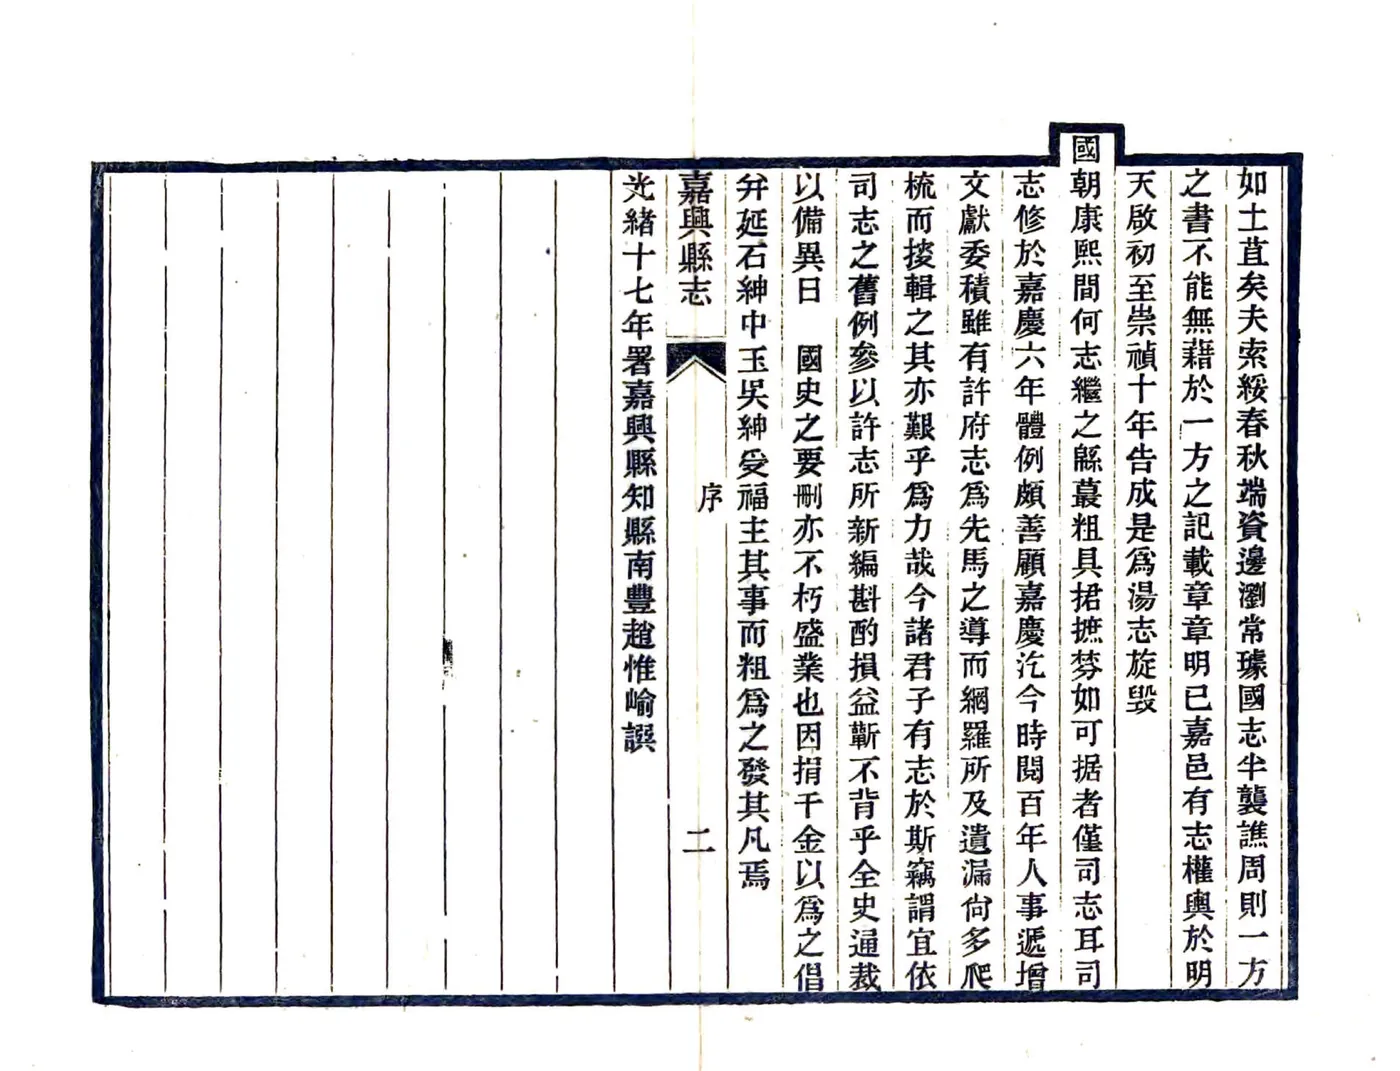 如土苴矣夫索綏春秋端資邊瀏常璩國志半襲譙周則一方
之書不能無藉於一方之記載章章明已嘉邑有志權輿於明
天啟初至崇禎十年告成是爲湯志旋毀
國朝康熙間何志繼之緜蕞粗具捃摭棼如可据者僅司志耳司
志修於嘉慶六年體例頗善顧嘉慶汔今時閱百年人事遞增
文獻委積雖有許府志爲先馬之導而網羅所及遺漏尙多爬
梳而掞輯之其亦艱乎爲力哉今諸君子有志於斯竊謂宜依
司志之舊例參以許志所新編斟酌損益蘄不背乎全史通裁
以備異日　國史之要刪亦不朽盛業也因捐千金以爲之倡
幷延石紳中玉吳紳受福主其事而粗爲之發其凡焉
嘉興縣志
序
二
光緒十七年署嘉興縣知縣南豐趙惟崳譔